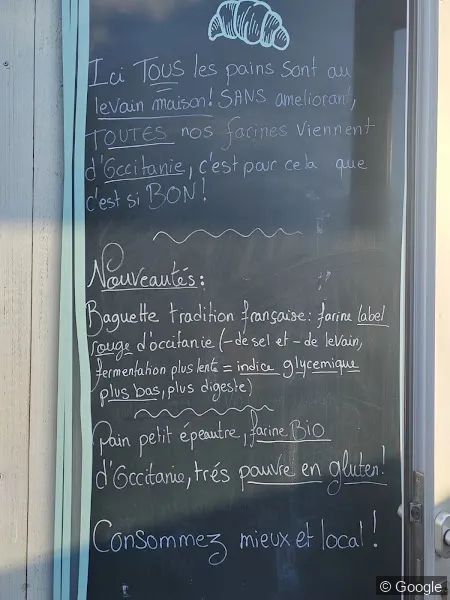 Ici TOUS les pains sont au
levain maison! SANS ameliorant,
TOUTES nos farines viennent
d'Occitanie, c'est pour cela que
c'est si BON!
Nouveautés:
Baguette tradition française: farine label
rouge d'occitanie (- de sel et - de levain,
fermentation plus lente = indice glycemique
plus bas, plus digeste)
Pain petit épeautre, farine BIO
d'Occitanie, trés pauvre en gluten!
Consommez mieux et local!
© Google